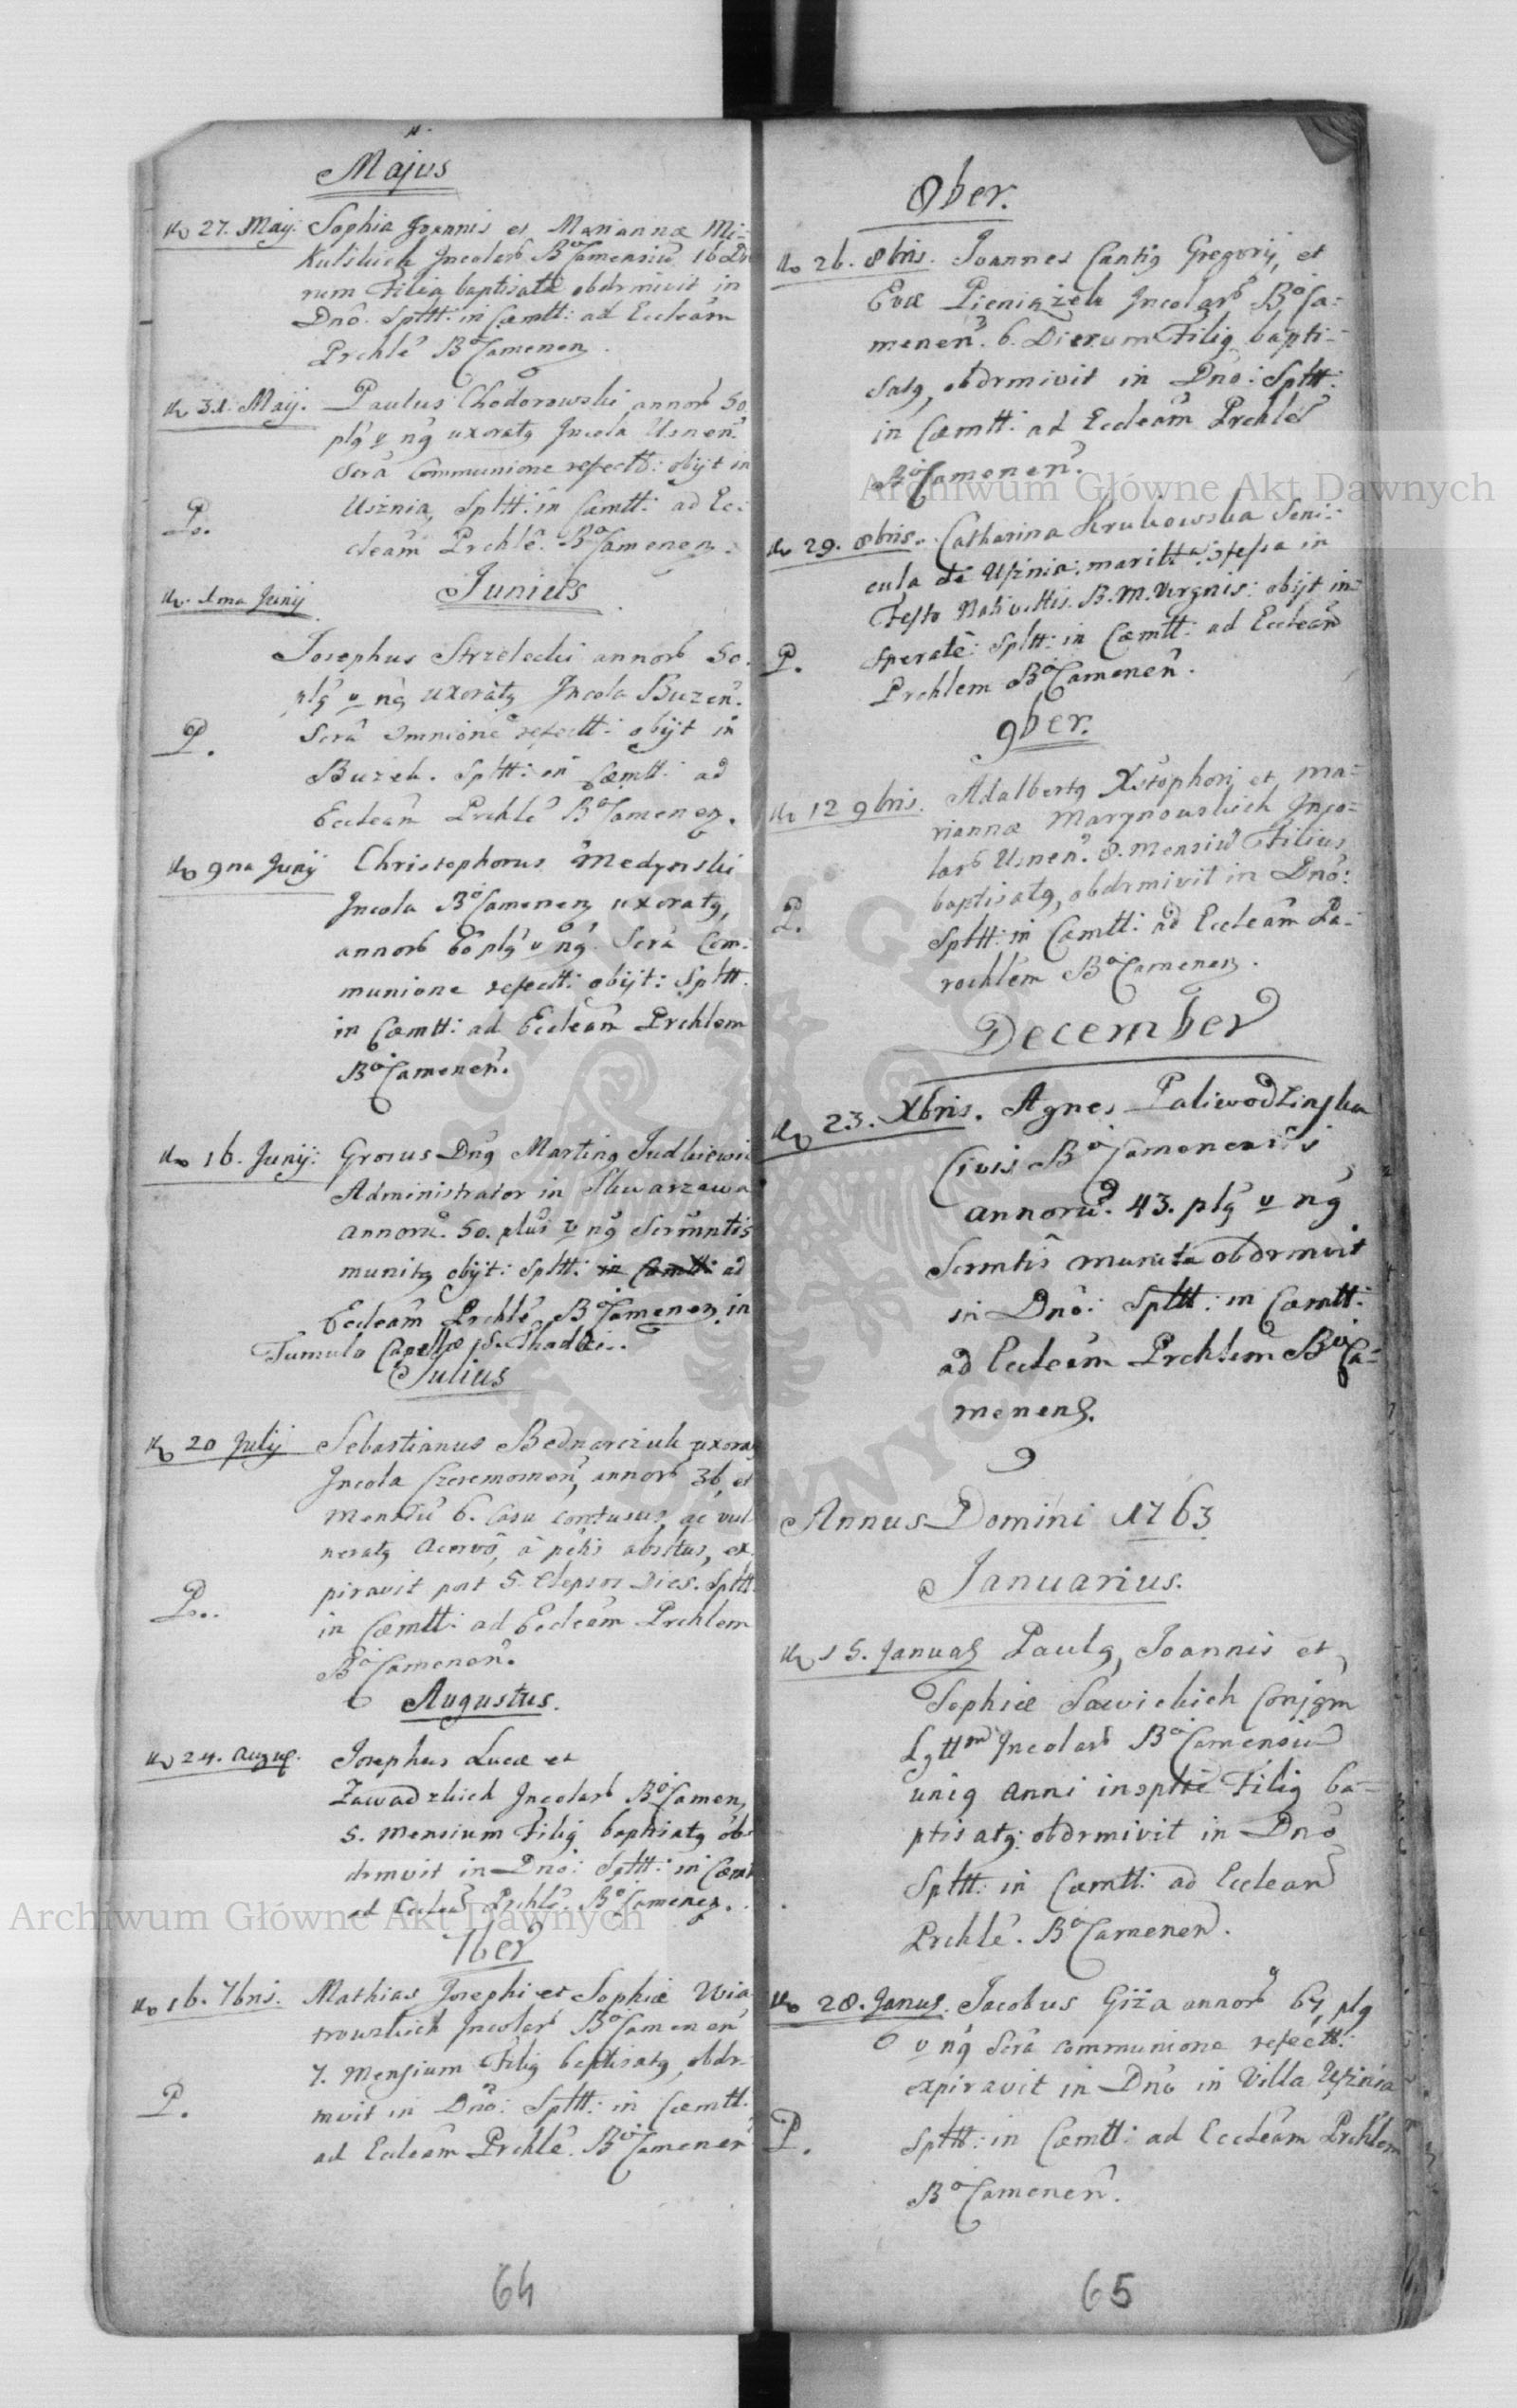 Majus
27. Maij. Sophia Joannis et Mariannæ Mi-
Kulskich Incolarb Bo Camensiu 16 Die
rum Filia baptisata obdrmivit in
Dno. Spltt: in Cæmtt: ad Eccleam
Prchle Bo Camenen.
31. Maij. Paulus Chodorowski annorb 50
plg v ng uxoratg Incola Usnen.
Scra Communione refectt: obijt in
Usznia, Spltt: in Cæmtt: ad Ec-
P. cleam Prchle. Bo Camenen.
Junius
1ma Junij
Josephus Strzelecki annorb 50.
plg v ng uxoratg Incola Buzen.
P. Scra Omnione refectt: obijt in
Buzek. Spltt: in Cæmtt: ad
Eccleam Prchle Bo Camenen.
9na Junij Christophorus Medynski
Incola Bo Camenen uxoratg,
annorb 60 plg v ng. Scra Com-
munione refectt: obijt: Spltt.
in Cæmtt: ad Eccleam Prchlem
Bo Camenen.
16. Junij: Grosus Dng Marting Judkiewi
Administrator in Skwarzawa
annoru. 50. plus v ng Scrmntis
munitg obijt: Spltt: in Cæmtt: ad
Eccleam Prchle Bo Camenen in
Tumulo Capellæ S. Thaddei.
Julius
20 Julij Sebastianus Bednarczuk uxora
Incola Czeremomen, annorb 36, et
Mensiu 6. Casu contusus, ac vul-
neratg acervo, à petis absltus, ex-
piravit post 5. Elepsos Dies. Spltt.
P. in Cæmtt: ad Eccleam Prchlem
Bo Camenen.
Augustus.
24. Augus. Josephus Lucæ et
Zawadzkich Incolarb Bo Camen,
5. Mensium Filig baptisatg ob-
drmvit in Dno: Spltt: in Cæmt
ad Eccleam Prchle. Bo Camenen.
7ber
16. 7bris. Mathias Josephi et Sophiæ Wia
trowskich Incolarb Bo Camenen
7. Mensium Filig baptisatg, obdr-
P. mvit in Dno: Spltt: in Cæmtt.
ad Eccleam Prchle. Bo Camenen
64
8ber.
26. 8bris. Joannes Cantig Gregorij, et
Evæ Pieniążek Incolarb Bo Ca-
menen. 6. Dierum Filig bapti-
satg, obdrmivit in Dno: Spltt:
in Cæmtt: ad Eccleam Prchle
Bo Camenen.
29. 8bris. Catharina Krukowska Seni-
cula de Usznia: maritta: in
Festo Nativittis. B. M. Virgnis: obijt in-
sperate: Spltt: in Cæmtt: ad Eccleam
P. Prchlem Bo Camenen.
9ber.
12 9bris. Adalbertg Xstophori et Ma-
riannæ Marynowskich Inco-
larb Usnen. 8. Mensiu Filius
baptisatg, obdrmivit in Dno:
P. Spltt: in Cæmtt: ad Eccleam Pa-
rochlem Bo Camenen.
December
23. Xbris. Agnes Paliwodzinska
Civis Bo Camenensis
annoru. 43. plg v ng
Scrmtis munita obdrmvit
in Dno: Spltt: in Cæmtt:
ad Eccleam Prchlem Bo Ca-
menen.
Annus Domini 1763
Januarius.
15. Januar Paulg, Joannis et
Sophiæ Sawickich Conjgm
Lgttm Incolarb Bo Camensiu
unig anni Filig ba-
ptisatg: obdrmivit in Dno
Spltt: in Cæmtt: ad Eccleam
Prchle. Bo Camenen.
28. Janua. Jacobus Giża annorb 67, plg
v ng Scra communione refectt:
expiravit in Dno in Villa Usznia
P. Spltt: in Cæmtt: ad Eccleam Prchlem
Bo Camenen.
65
Archiwum Główne Akt Dawnych
Archiwum Główne Akt Dawnych